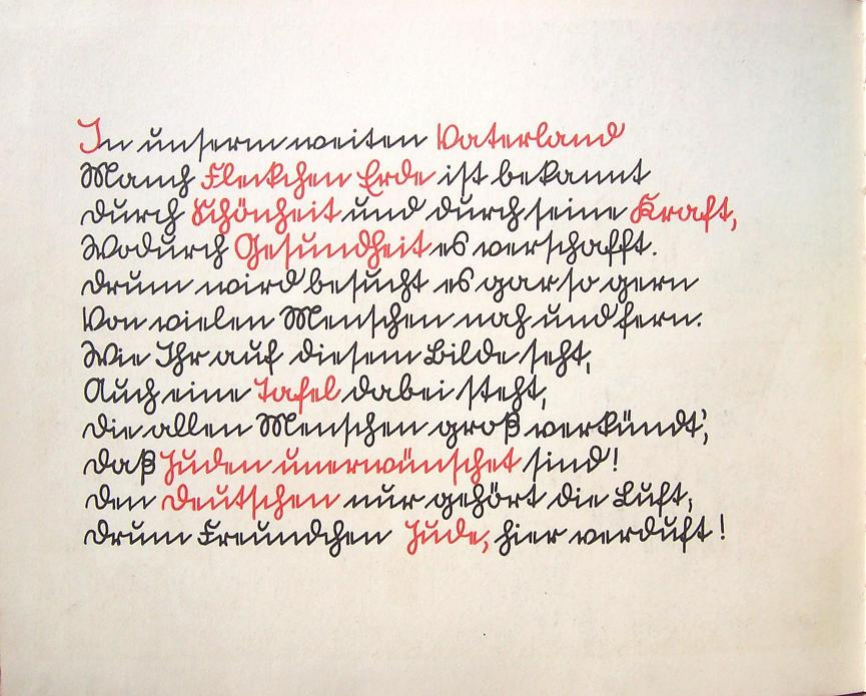 In unserm weiten Vaterland
Manch Fleckchen Erde ist bekannt
durch Schönheit und durch seine Kraft,
Wodurch Gesundheit es verschafft.
drum wird besucht es gar so gern
Von vielen Menschen nah und fern.
Wie Ihr auf diesem Bilde seht,
Auch eine Tafel dabei steht,
die allen Menschen groß verkündt',
daß Juden unerwünschet sind!
den Deutschen nur gehört die Luft,
drum Freundchen Jude, hier verduft!